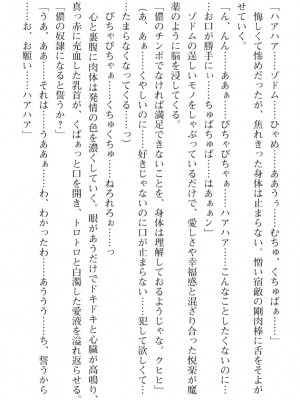 「ハアハア……ゾドム……ひゃめ……ああうぅ……むちゅ、くちゅぱぁ……」
悔しくて惨めだったが、焦れきった身体は止まらない。憎い宿敵の剛肉棒に舌をそよがせていく。
「ん、んん……あぁぁ……ぴちゃぴちゃぁ……ハアハア……こんなことしたくないのに……お口が勝手にぃ……ちゅぱちゅぱ……はあぁンッ」
ゾドムの逞しいモノをしゃぶっているだけで、愛しさや幸福感と混ざり合った悦楽が魔薬のように脳を浸してくる。
「儂のチンポでなければ満足できないことを、身体は理解しておるようじゃな。クヒヒ」
（あ、あぁ……くやしいのに……好きじゃないのに口が止まらない……犯して欲しくてたまらなくなってくる……っ）
ぴちゃぴちゃぁ……くちゅくちゅ……ねろれろぉ……っ
心と裏腹に肉体は発情の色を濃くしていく。眼があうだけでドキドキと心臓が高鳴り、真っ赤に充血した乳首が、くぱぁっと口を開き、トロトロと白濁した愛液を溢れ返らせる。
「儂の奴隷になると誓うか？」
「うあ、ああ……それは……うああぁ……わ、わかったわ……あううう……ち、誓うから……お、お願い……ハアハア」